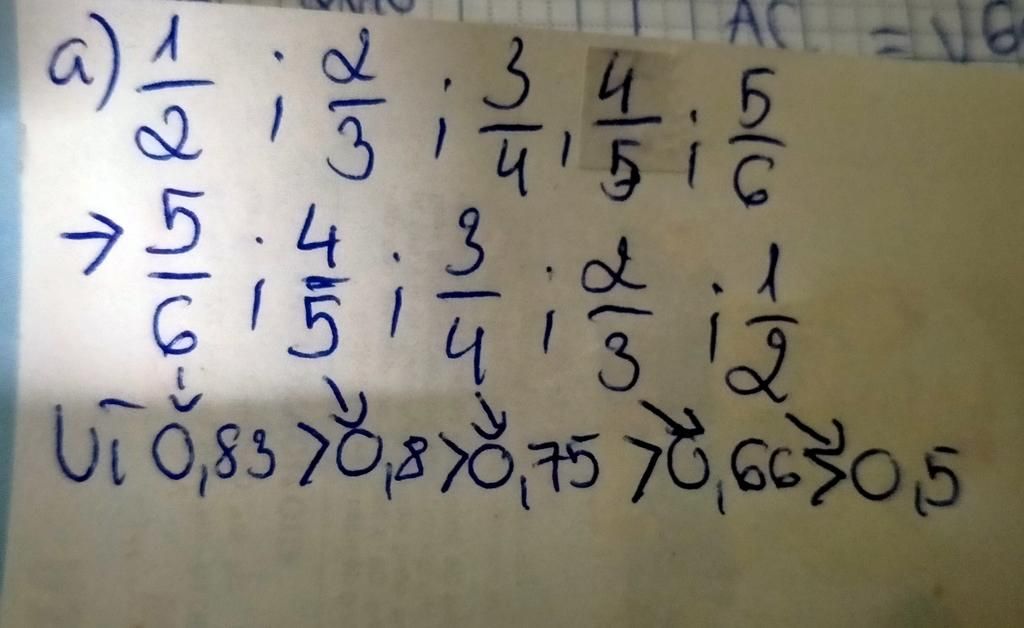 AC = √6
a) 1/2 ; 2/3 ; 3/4 , 4/5 ; 5/6
→ 5/6 ; 4/5 ; 3/4 ; 2/3 ; 1/2
Vì 0,83 > 0,8 > 0,75 > 0,66 > 0,5